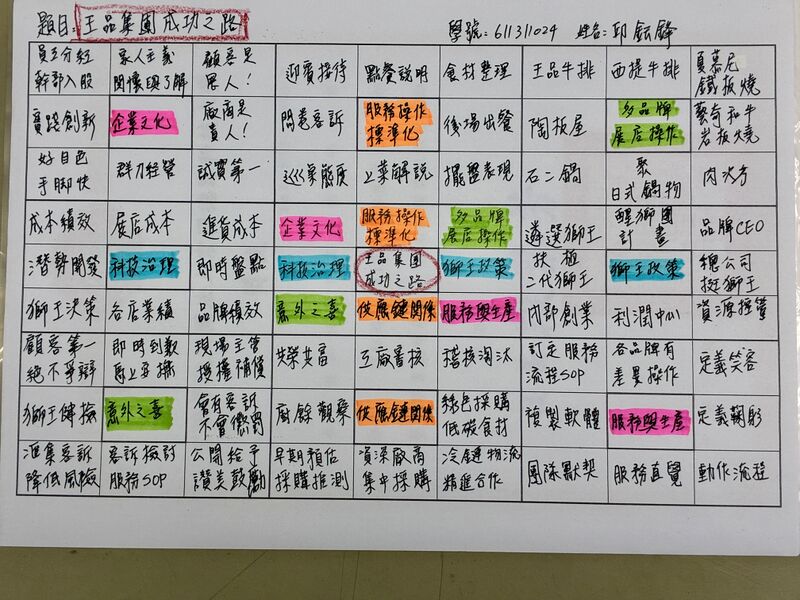 題目：王品集團成功之路
學號：611311024 姓名：邱鈺鋒
員工分紅 家人主義 顧客是 迎賓接待 點餐說明 食材整理 王品牛排 西提牛排 夏慕尼
幹部入股 關懷與了解 恩人！ 鐵板燒
實踐創新 企業文化 廠商是 問卷客訴 服務操作 後場出餐 陶板屋 多品牌 藝奇和牛
貴人！ 標準化 展店操作 岩板燒
好目色 群力經營 誠實第一 巡桌態度 上菜解說 擺盤表現 石二鍋 聚 肉次方
手腳快 日式鍋物
成本績效 展店成本 進貨成本 企業文化 服務操作 多品牌 遴選獅王 醒獅團 品牌CEO
標準化 展店操作 計畫
潛勢開發 科技治理 即時盤點 科技治理 王品集團 獅王政策 扶植 獅王政策 總公司
成功之路 二代獅王 挺獅王
獅王決策 各店業績 品牌績效 意外之喜 供應鏈關係 服務與生產 內部創業 利潤中心 資源控管
顧客第一 即時到歉 現場主管 共榮共富 工廠審核 稽核淘汰 訂定服務 各品牌有 定義笑容
絕不爭辯 馬上更換 授權補償 流程SOP 差異操作
獅王健檢 意外之喜 會有客訴 廚餘觀桌 供應鏈關係 綠色採購 複製軟體 服務與生產 定義鞠躬
不會懲罰 低碳食材
匯集客訴 客訴檢討 公開給予 早期預估 資深廠商 冷鏈物流 團隊默契 服務直覺 動作流程
降低風險 服務SOP 讚美鼓勵 採購推測 集中採購 精進合作